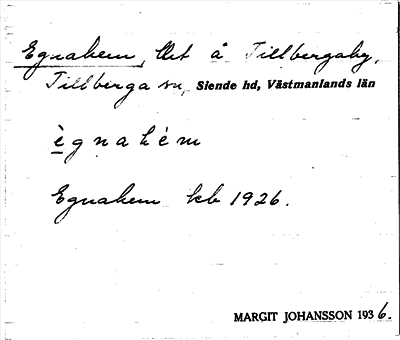 Egnahem, lht å Tillbergaby,
Tillberga sn, Siende hd, Västmanlands län
ègnahém
Egnahem kb 1926.
MARGIT JOHANSSON 1936.